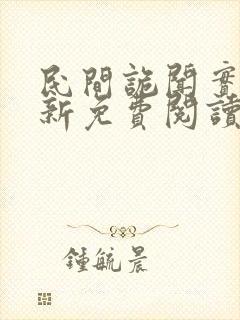 民間詭聞實
新免費閱讀
鍾毓晨